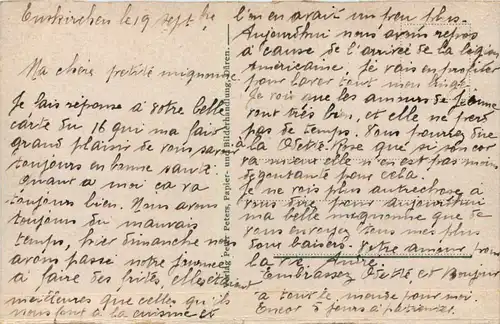 Euskirchen le 19 sept
Ma chère petite mignonne
Je fais réponse à votre belle
carte du 16 qui ma fait
grand plaisir de vous savoir
toujours en bonne santé.
Quant a moi ca va
toujours bien. Nous avons
toujours du mauvais
temps, hier dimanche nous
avons passé notre journée
a faire des frites, elles étaient
meilleures que celles qu'ils
nous font à la cuisine et
Verlag: Peter Peters, Papier- und Bilderhandlung, Düren.
l'on en avait un peu plus.
Aujourdhui nous avons repos
à cause de l'arrivée de la
Américaine. Je vais en profiter
pour laver tout mon linge
Je vois que les amours de Jeanne
vont très bien, et elle ne perd
pas de temps. Vous pourrez dire
à la que si son cor
va mieux elle n'en est pas moins
dégoutante pour cela.
Je ne vois plus autrechose à
vous dire pour aujourdhui
ma belle mignonne que de
vous envoyer tous mes plus
doux baisers. Votre amour pour
la vie André.
Embrassez et Bonjour
à tout le monde pour moi
Encor jours à patienter.